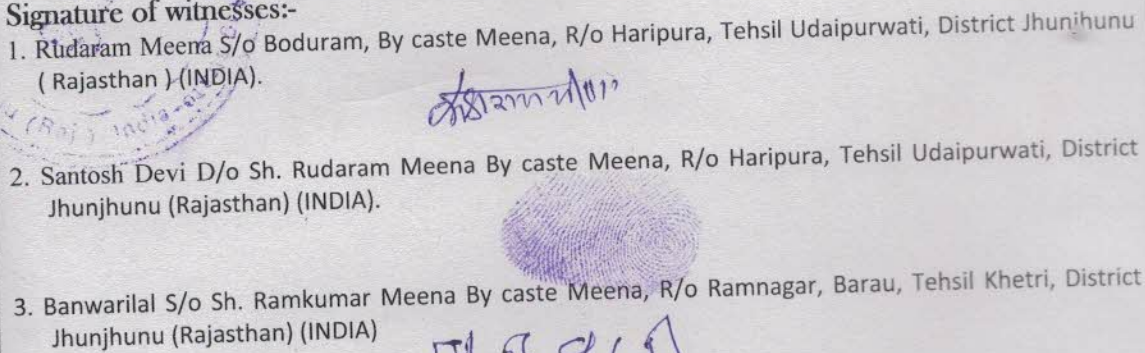 Signature of witnesses:-
1. Rudaram Meena S/o Boduram, By caste Meena, R/o Haripura, Tehsil Udaipurwati, District Jhunjhunu
( Rajasthan ) (INDIA).
(Raj.) India
2. Santosh Devi D/o Sh. Rudaram Meena By caste Meena, R/o Haripura, Tehsil Udaipurwati, District
Jhunjhunu (Rajasthan) (INDIA).
3. Banwarilal S/o Sh. Ramkumar Meena By caste Meena, R/o Ramnagar, Barau, Tehsil Khetri, District
Jhunjhunu (Rajasthan) (INDIA)